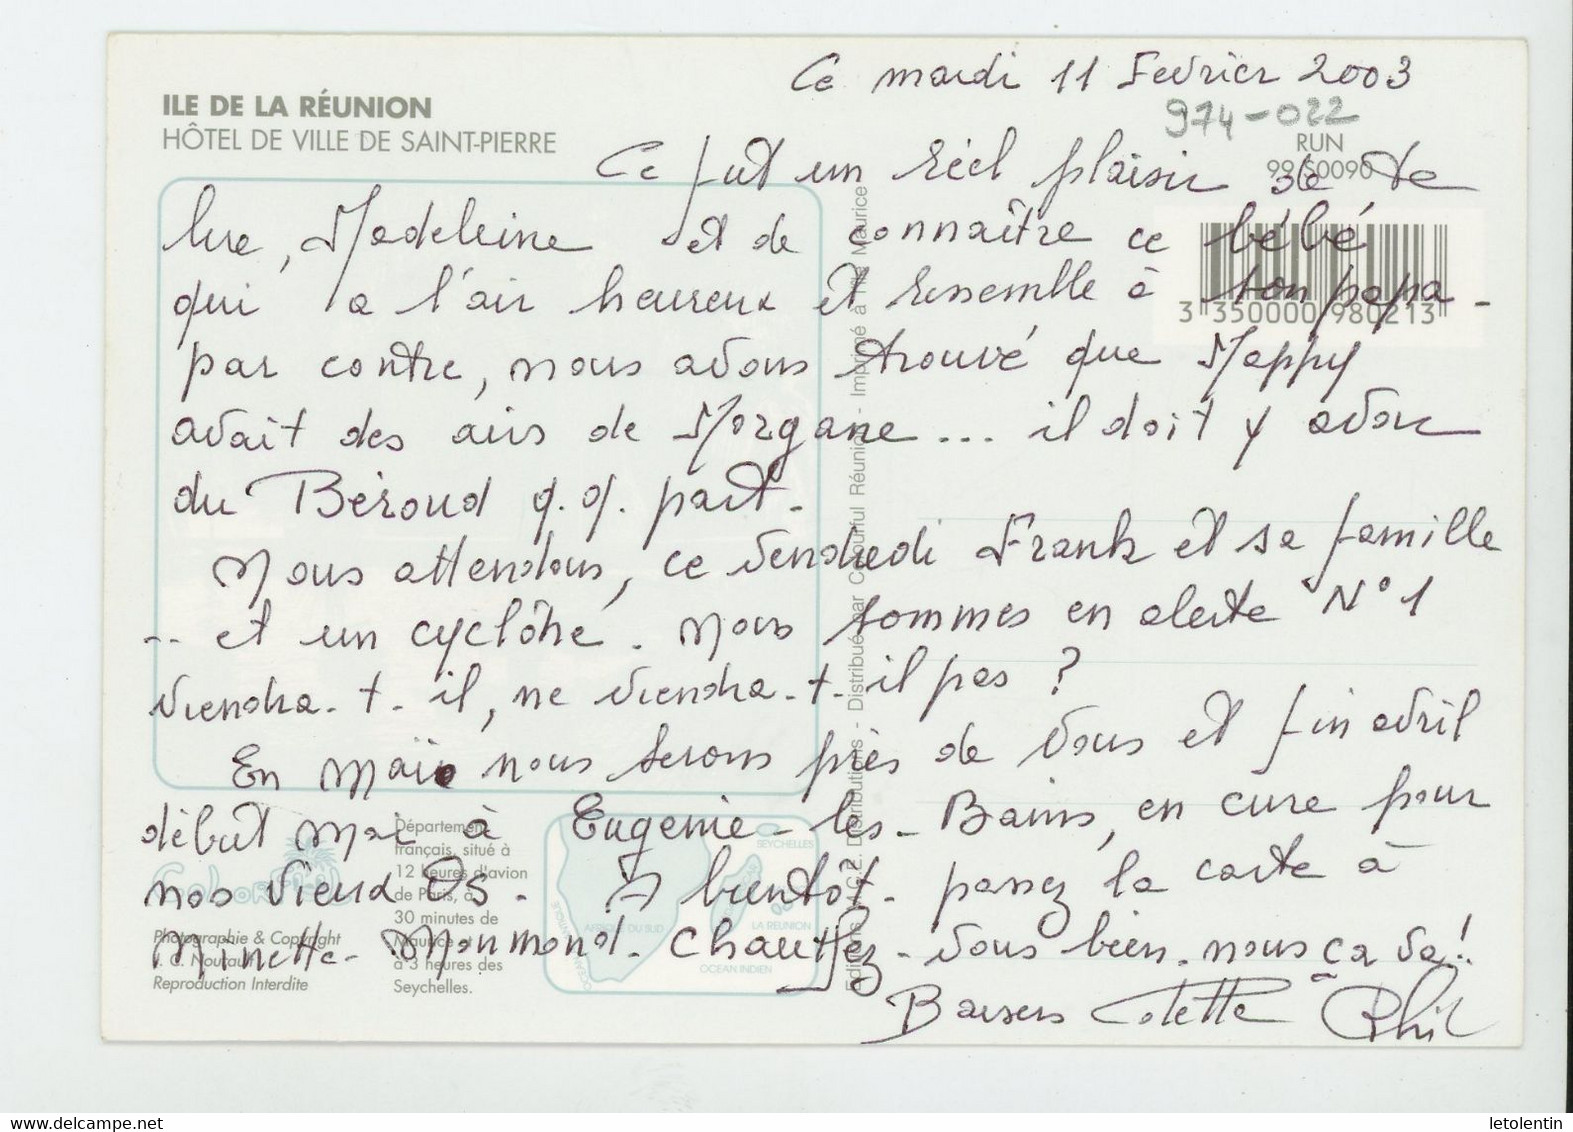 Ce mardi 11 Fevrier 2003
974-022
ILE DE LA RÉUNION
HÔTEL DE VILLE DE SAINT-PIERRE
RUN
99/50090
Ce fut un réel plaisir de te
lire, Madeleine et de connaître ce bébé
qui a l'air heureux et ressemble à son papa -
par contre, nous avons trouvé que Mappy
avait des airs de Morgane ... il doit y avoir
du Béroud q. q. part -
Nous attendons, ce vendredi Frank et sa famille
... et un cyclône. Nous sommes en alerte N°1
viendra-t-il, ne viendra-t-il pas ?
En mai nous serons près de vous et fin avril
début mai à Eugénie-les-Bains, en cure pour
nos vieux Os - A bientôt - passez la carte à
Minette - Monmond - Chauffez-vous bien. nous ça va!
Baisers Colette Phil
3 350000 980213
Editions M.C.E. Distributions - Distribué par Colourful Réunion - Imprimé à l'Ile Maurice
COLORPRINT
Photographie & Copyright
Reproduction Interdite
Département
français, situé à
12 heures d'avion
de Paris, à
30 minutes de
Maurice et
à 3 heures des
Seychelles.
SEYCHELLES
AFRIQUE DU SUD
LA REUNION
OCEAN INDIEN
letolentin